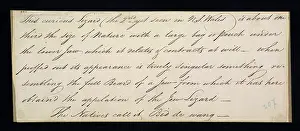 This curious lizard, the 2nd yet seen in N.S. Wales is about one
third the size of Nature with a large bag or pouch under
the lower jaw which it extends & contracts at will - when
puffed out its appearance is truly singular something re-
sembling the full Beard of a Jew from which it has here
obtained the appellation of the Jew Lizard -
The Natives call it, Bid de wang -